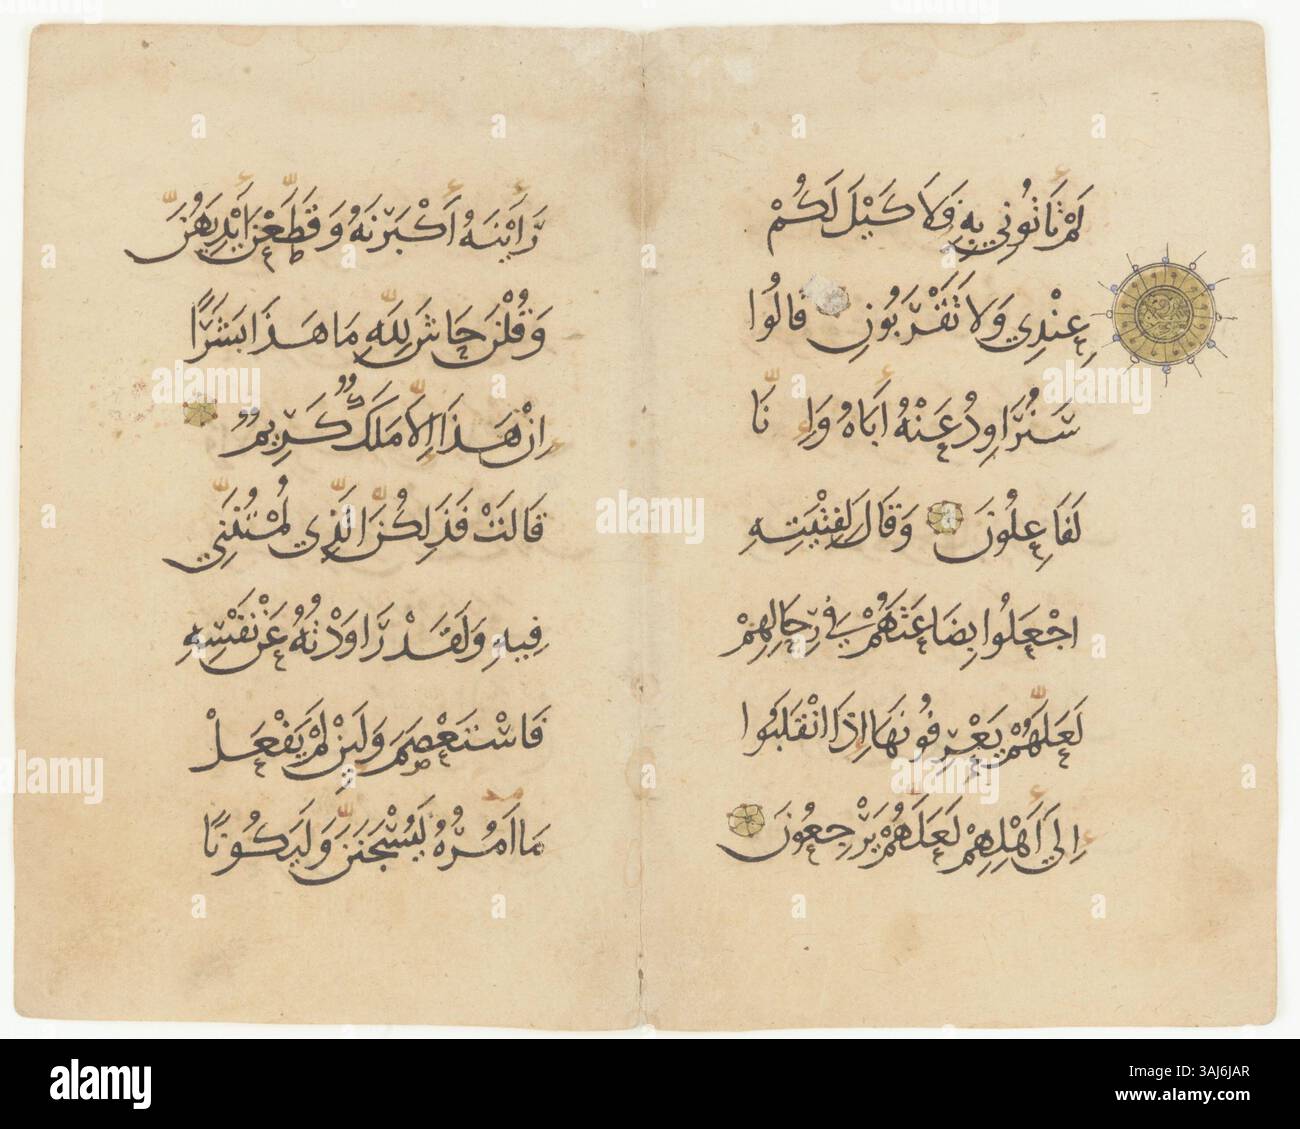 لَمْ تَأْتُونِي بِهِ فَلَا كَيْلَ لَكُمْ
عِنْدِي وَلَا تَقْرَبُونِ قَالُوا
سَنُرَاوِدُ عَنْهُ أَبَاهُ وَإِنَّا
لَفَاعِلُونَ وَقَالَ لِفِتْيَتِهِ
اجْعَلُوا بِضَاعَتَهُمْ فِي رِحَالِهِمْ
لَعَلَّهُمْ يَعْرِفُونَهَا إِذَا انْقَلَبُوا
إِلَى أَهْلِهِمْ لَعَلَّهُمْ يَرْجِعُونَ
رَأَيْنَهُ أَكْبَرْنَهُ وَقَطَّعْنَ أَيْدِيَهُنَّ
وَقُلْنَ حَاشَ لِلَّهِ مَا هَذَا بَشَرًا
إِنْ هَذَا إِلَّا مَلَكٌ كَرِيمٌ
قَالَتْ فَذَلِكُنَّ الَّذِي لُمْتُنَّنِي
فِيهِ وَلَقَدْ رَاوَدْتُهُ عَنْ نَفْسِهِ
فَاسْتَعْصَمَ وَلَئِنْ لَمْ يَفْعَلْ
مَا آمُرُهُ لَيُسْجَنَنَّ وَلَيَكُونًا
alamy
alamy
Image ID: 3AJ6JAR
www.alamy.com